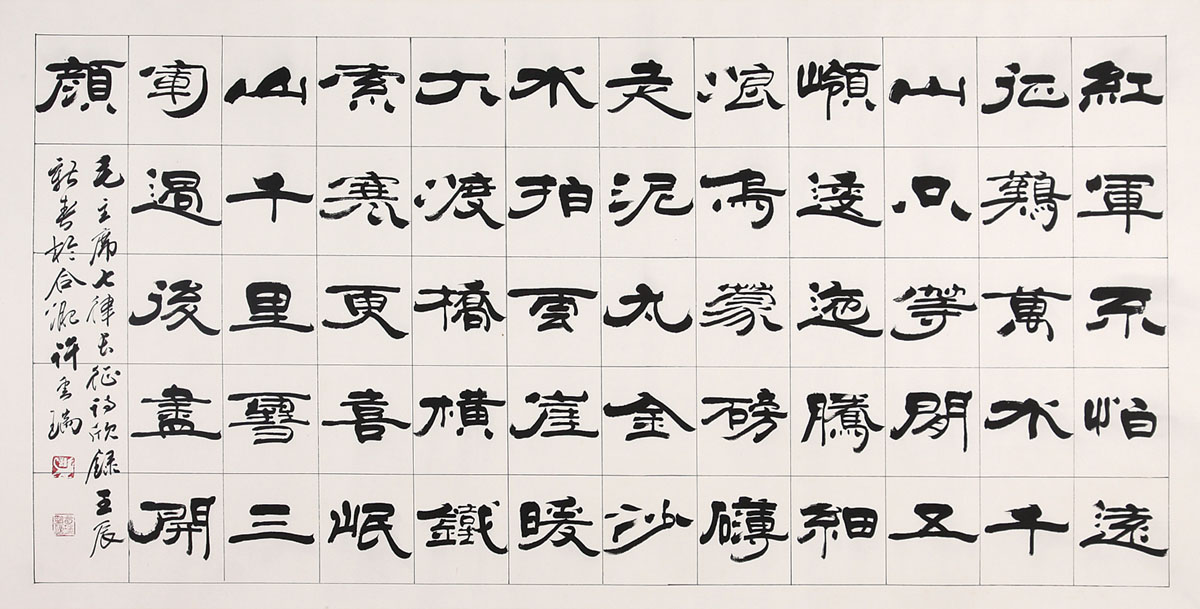 紅軍不怕遠
征難萬水千
山只等閒五
嶺逶迤騰細
浪烏蒙磅礴
走泥丸金沙
水拍雲崖暖
大渡橋橫鐵
索寒更喜岷
山千里雪三
軍過後盡開
顏
毛主席七律長征詩欣録壬辰
新春於合肥許雲瑞